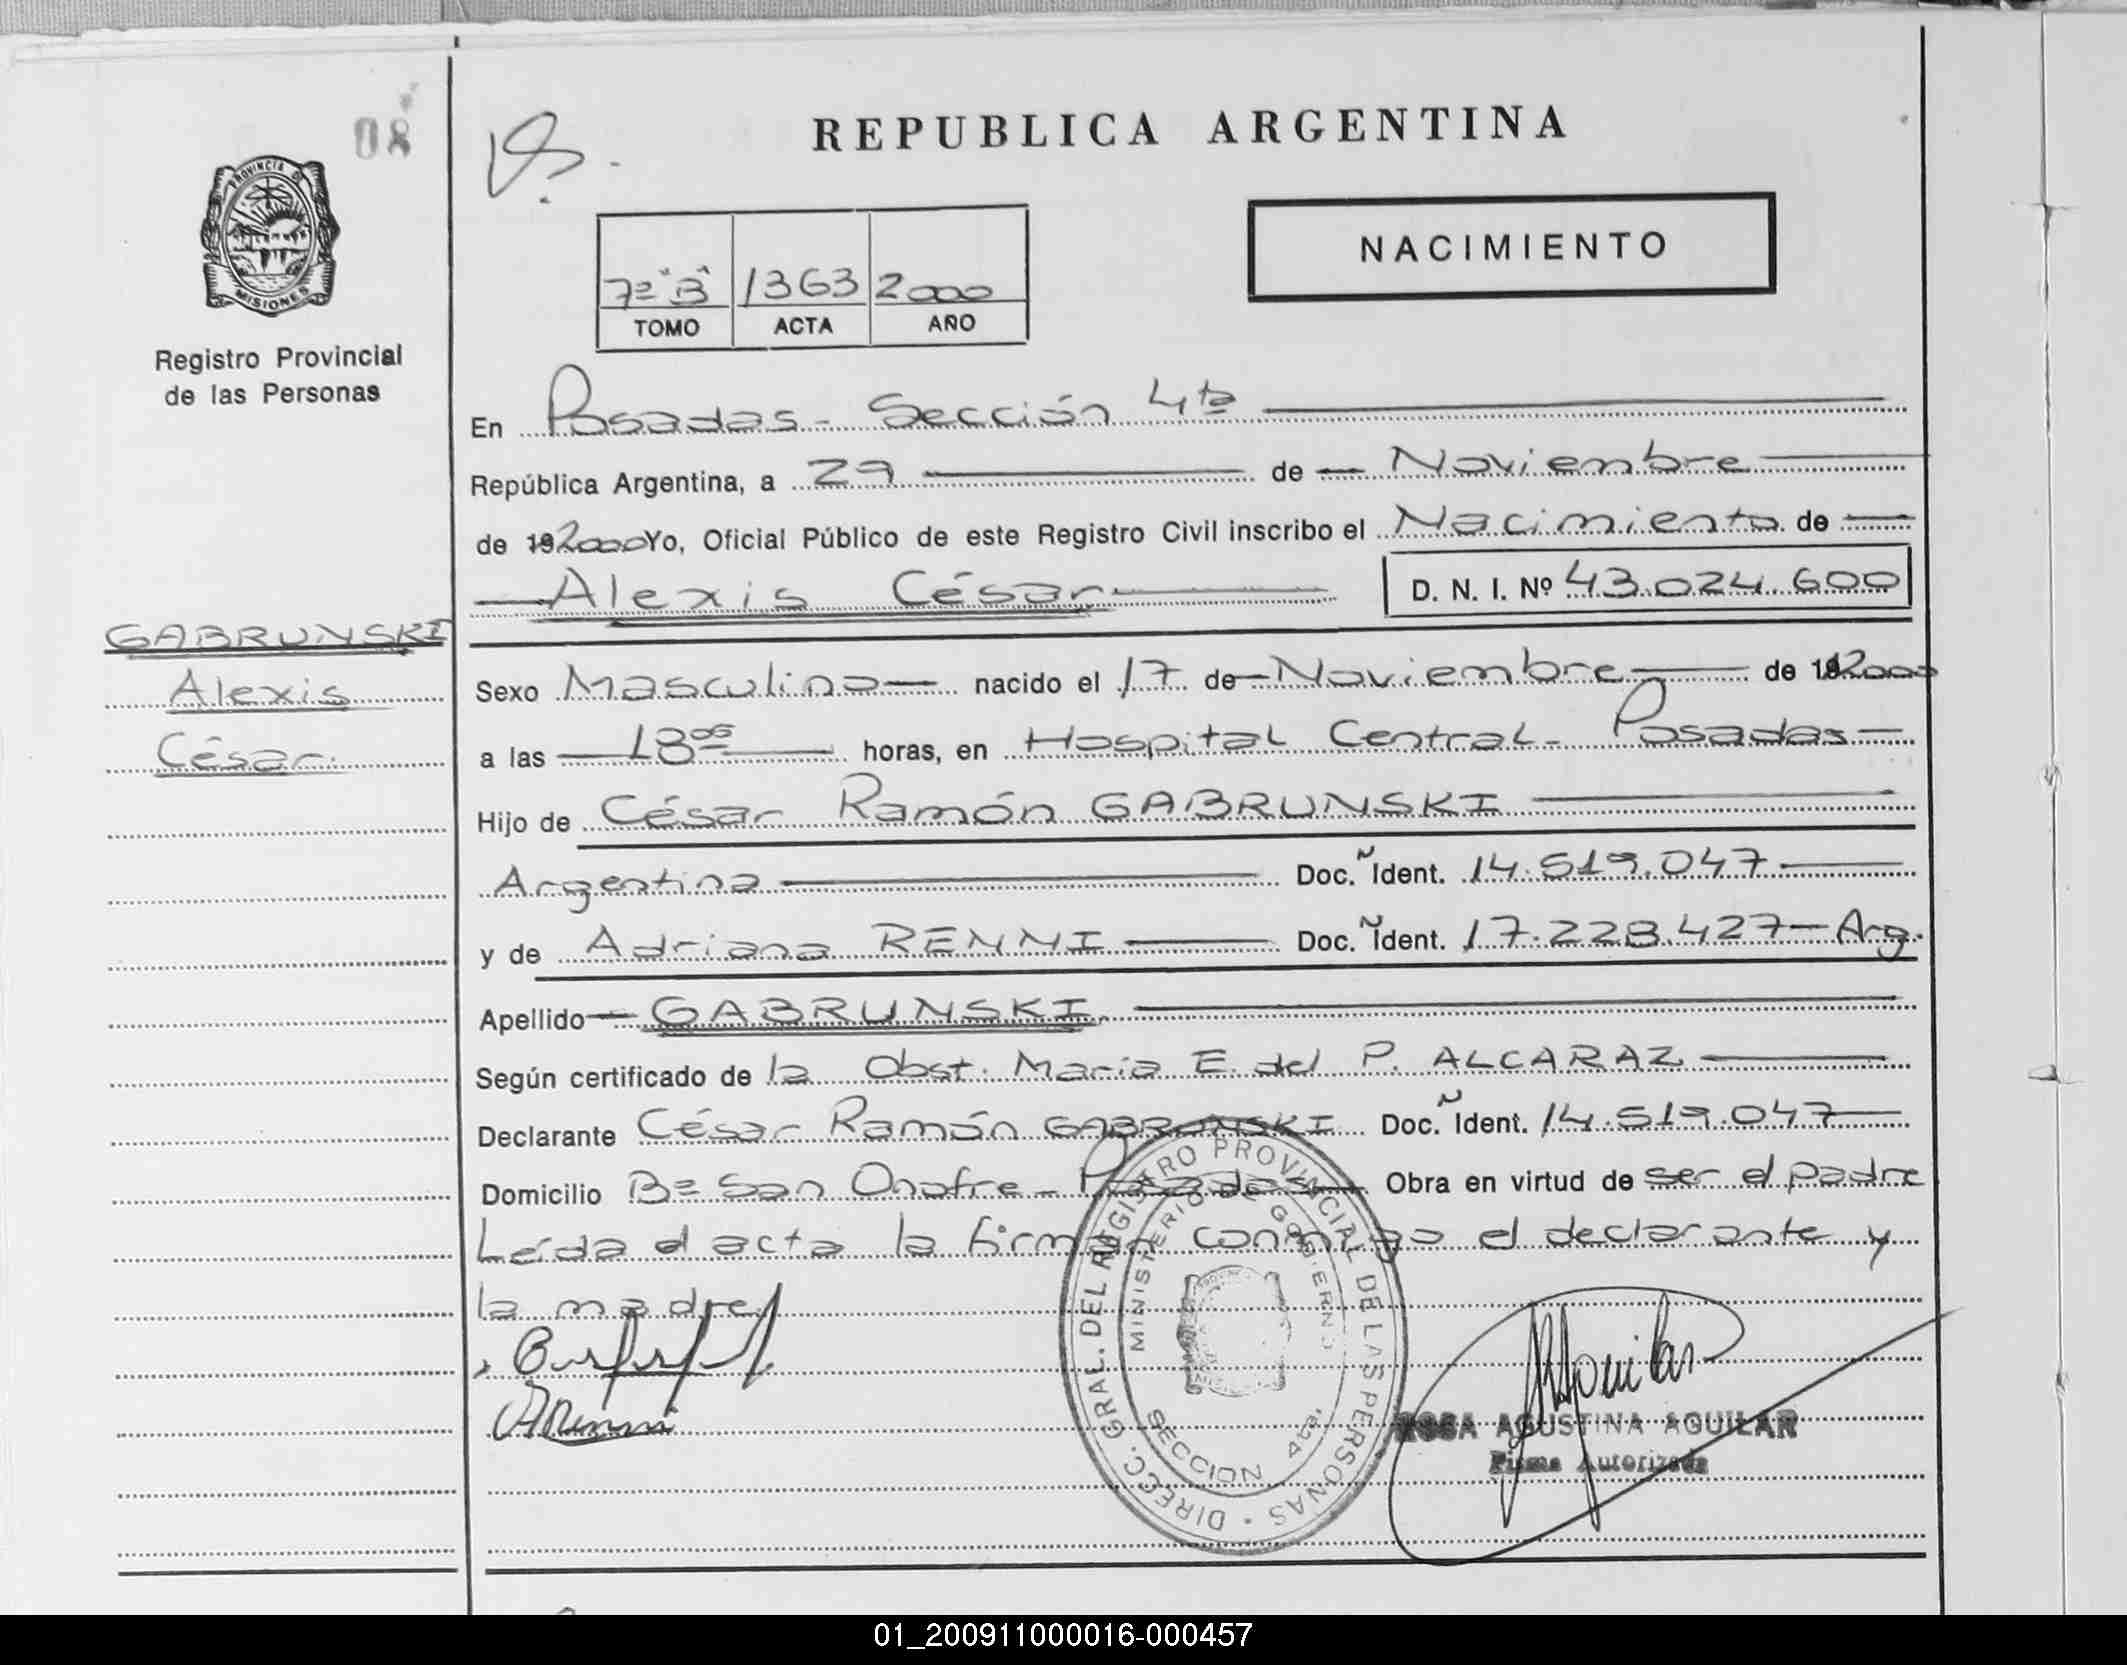 08
REPUBLICA ARGENTINA
PROVINCIA DE
MISIONES
NACIMIENTO
7º "B" 1363 2000
TOMO ACTA AÑO
Registro Provincial
de las Personas
En Posadas - Sección 4ta
República Argentina, a 29 de Noviembre
de 192000 Yo, Oficial Público de este Registro Civil inscribo el Nacimiento de
Alexis César D. N. I. Nº 43.024.600
GABRUNSKI
Alexis
César.
Sexo Masculino nacido el 17 de Noviembre de 192000
a las 18 05 horas, en Hospital Central - Posadas
Hijo de César Ramón GABRUNSKI
Argentina Doc. Ñ Ident. 14.519.047
y de Adriana RENNI Doc. Ñ Ident. 17.228.427 - Arg.
Apellido GABRUNSKI.
Según certificado de la Obst. Maria E. del P. ALCARAZ
Declarante César Ramón GABRUNSKI Doc. Ñ Ident. 14.519.047
Domicilio Bº San Onofre - Posadas Obra en virtud de ser el padre
Leída el acta la firman conmigo el declarante y
la madre
DIRECC. GRAL. DEL REGISTRO PROVINCIAL DE LAS PERSONAS
MINISTERIO DE GOBIERNO
SECCION 4ta.
ARenni
RAguilar
ROSA AGUSTINA AGUILAR
Firma Autorizada
01_200911000016-000457